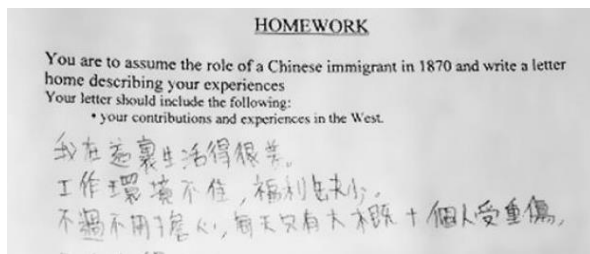 HOMEWORK
You are to assume the role of a Chinese immigrant in 1870 and write a letter
home describing your experiences
Your letter should include the following:
• your contributions and experiences in the West.
我在這裏生活得很差。
工作環境不佳,福利缺少。
不過不用擔心,每天只有大概十個人受重傷,